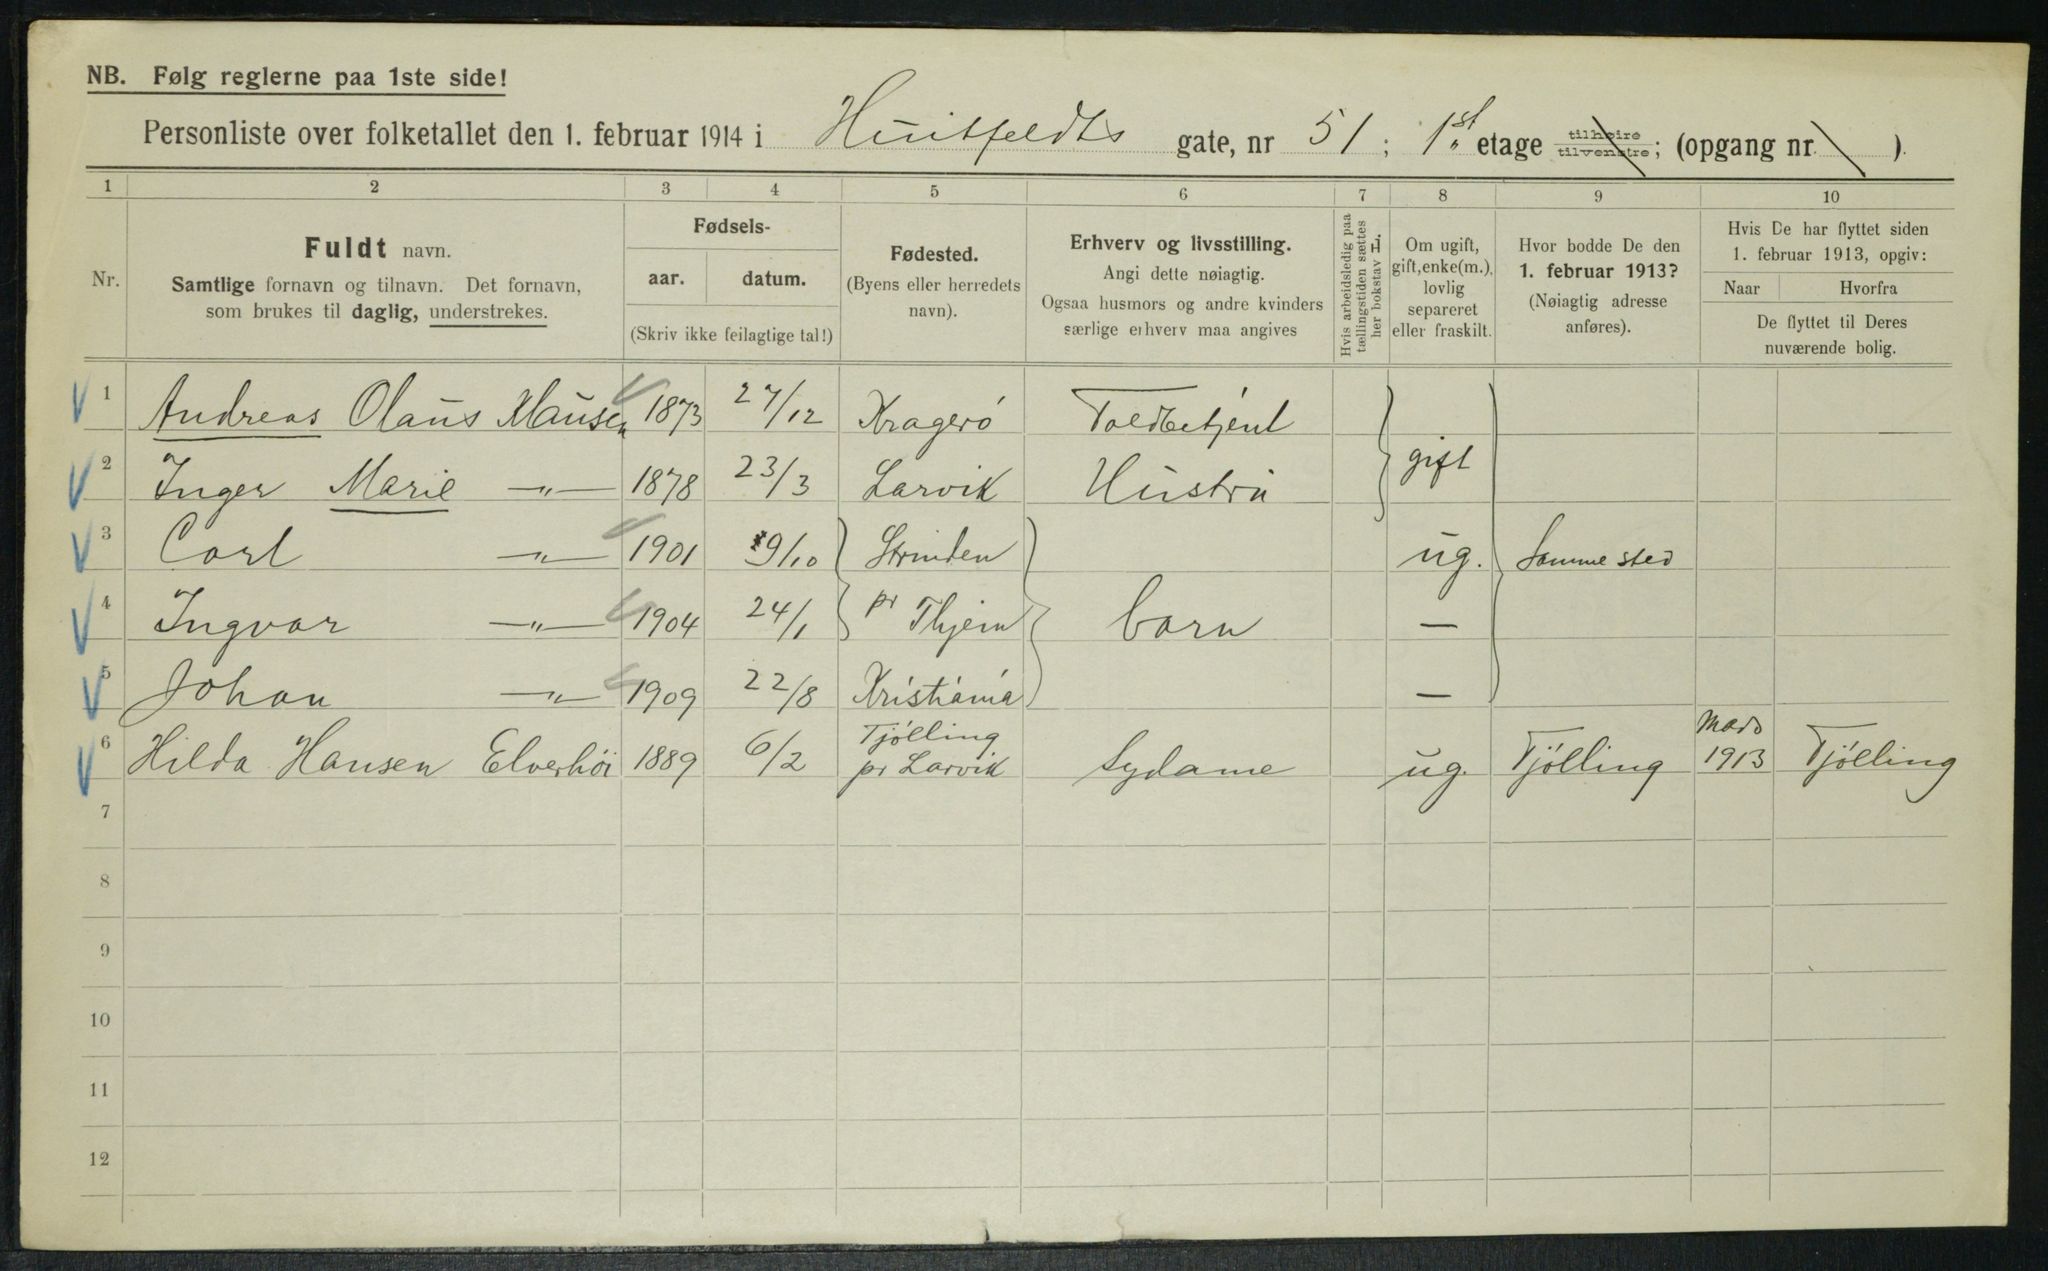 NB. Følg reglerne paa 1ste side!
Personliste over folketallet den 1. februar 1914 i Huitfeldts gate, nr 51; 1st etage tilhøire tilvenstre; (opgang nr. )
1 2 3 4 5 6 7 8 9 10
Nr.
Fuldt navn.
Samtlige fornavn og tilnavn. Det fornavn,
som brukes til daglig, understrekes.
Fødsels-
aar. datum.
(Skriv ikke feilagtige tal!)
Fødested.
(Byens eller herredets
navn).
Erhverv og livsstilling.
Angi dette nøiagtig.
Ogsaa husmors og andre kvinders
særlige erhverv maa angives
Hvis arbeidsledig paa
tællingstiden sættes
her bokstav L.
Om ugift,
gift, enke(m.),
lovlig
separeret
eller fraskilt.
Hvor bodde De den
1. februar 1913?
(Nøiagtig adresse
anføres).
Hvis De har flyttet siden
1. februar 1913, opgiv:
Naar Hvorfra
De flyttet til Deres
nuværende bolig.
1 Andreas Olaus Klausen 1873 27/12 Kragerö Toldbetjent
gift
2 Inger Marie -"- 1878 23/3 Larvik Hustru
3 Carl -"- 1901 9/10 Strinden ug. Samme sted
4 Ingvar -"- 1904 24/1 pr Thjem barn —
5 Johan -"- 1909 22/8 Kristiania —
6 Hilda Hansen Elverhöi 1889 6/2 Tjölling pr Larvik Sydame ug. Tjölling Mars 1913 Tjölling
7
8
9
10
11
12